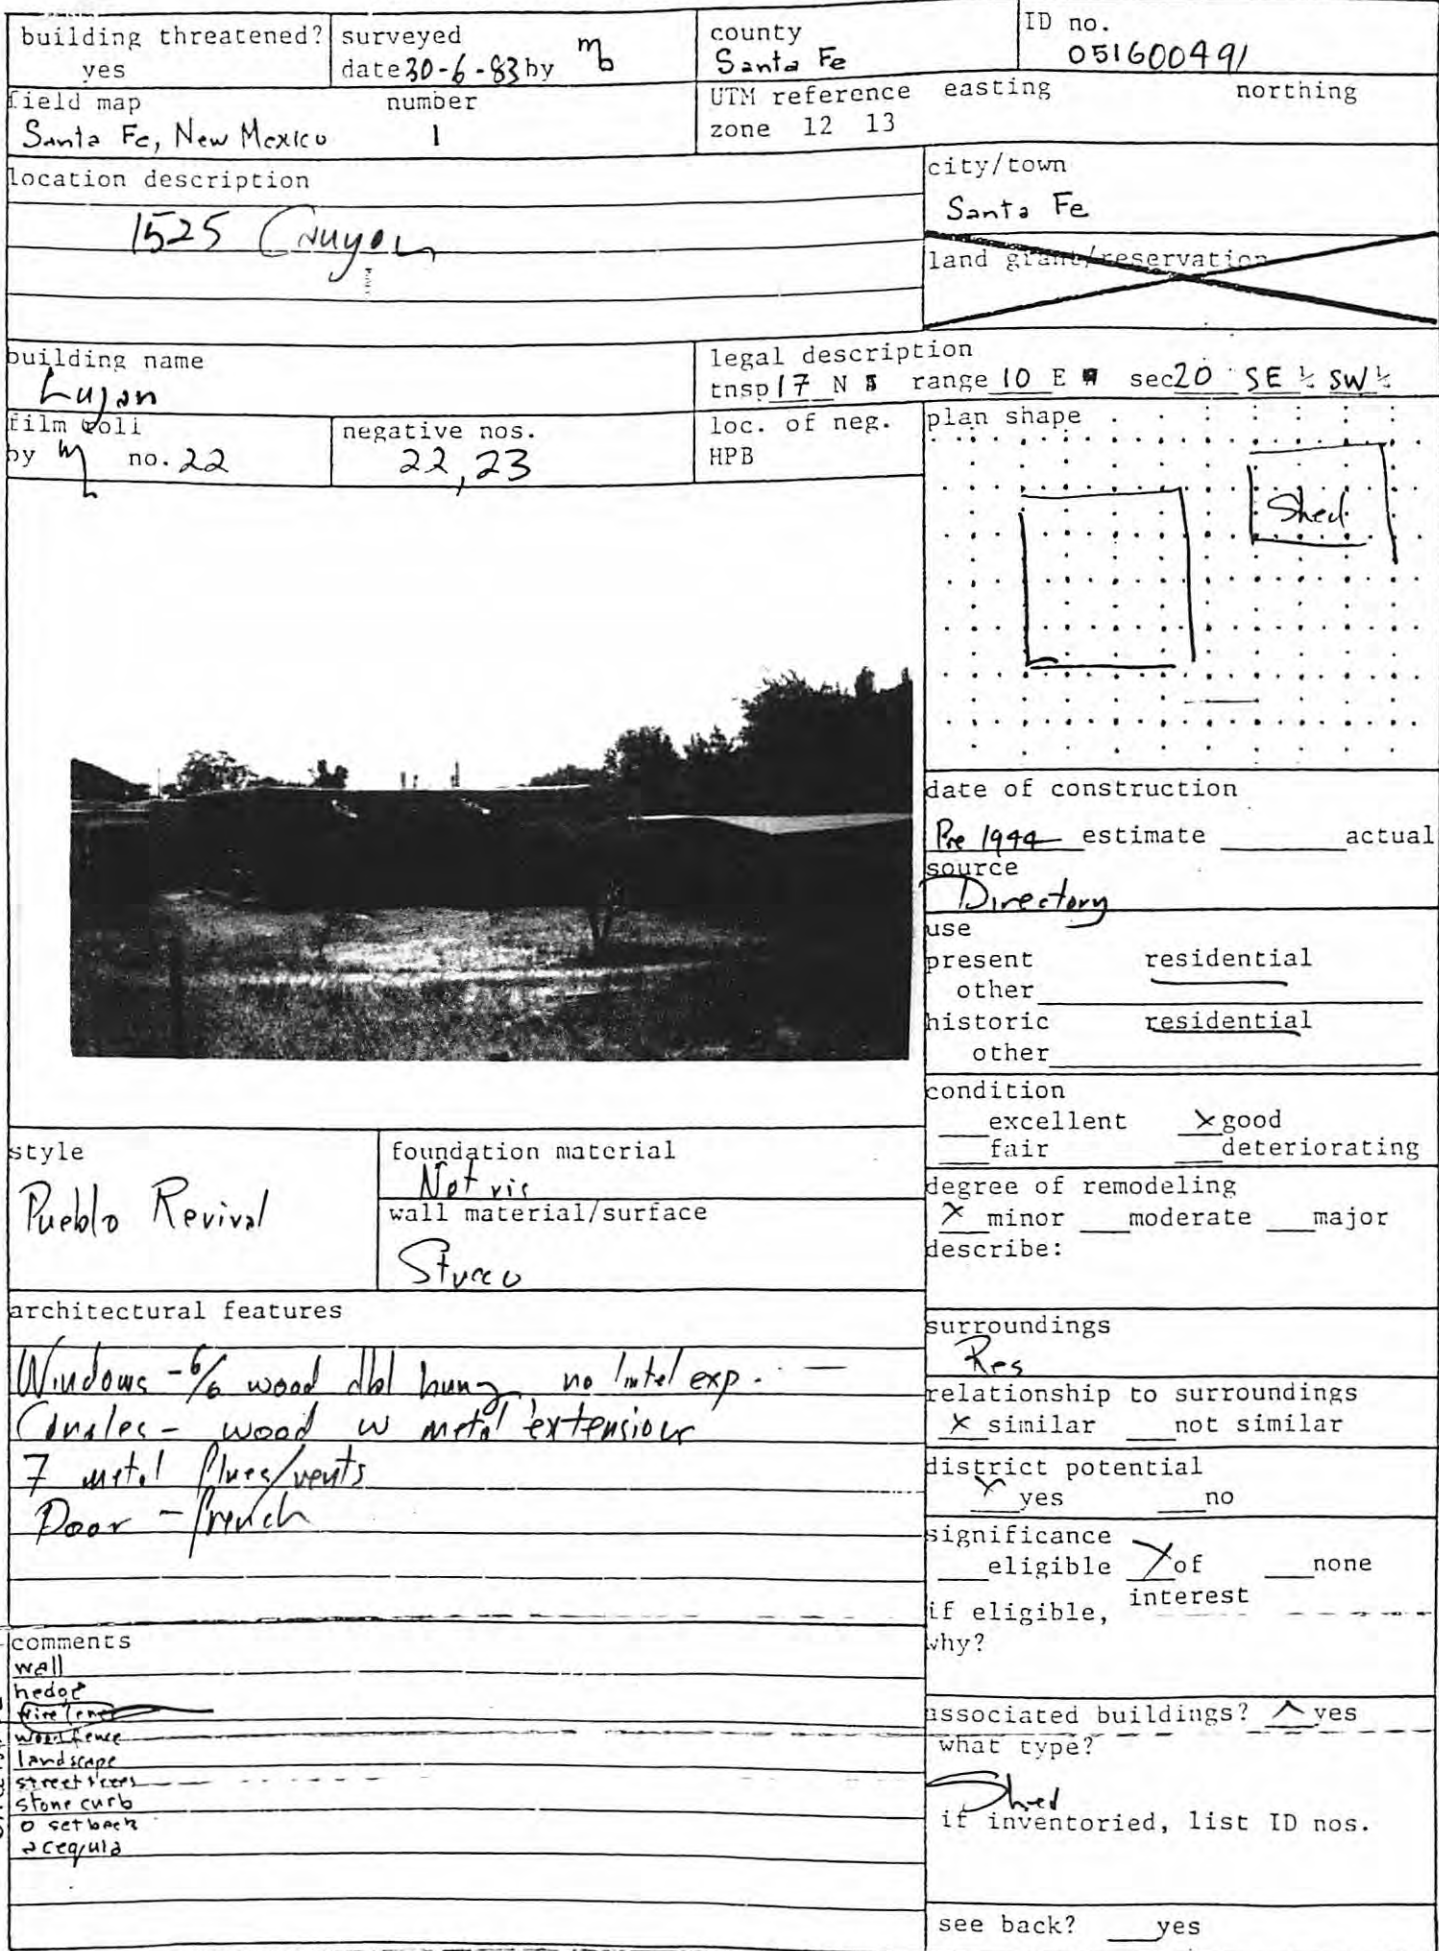 building threatened?
yes
surveyed
date 30-6-83 by mb
county
Santa Fe
ID no.
051600491
field map number
Santa Fe, New Mexico 1
UTM reference easting northing
zone 12 13
location description
1525 Canyon
city/town
Santa Fe
land grant/reservation
building name
Lujan
legal description
tnsp 17 N range 10 E sec 20 SE ¼ SW ¼
film roll
by no. 22
negative nos.
22, 23
loc. of neg.
HPB
plan shape
Shed
date of construction
Pre 1944 estimate actual
source
Directory
use
present residential
other
historic residential
other
condition
excellent ×good
fair deteriorating
style
Pueblo Revival
foundation material
Not vis
wall material/surface
Stucco
degree of remodeling
× minor moderate major
describe:
architectural features
Windows - 6/6 wood dbl hung, no lintel exp. —
Canales - wood w metal extensions
7 metal flues/vents
Door - french
surroundings
Res
relationship to surroundings
× similar not similar
district potential
× yes no
significance
eligible × of none
interest
if eligible,
why?
comments
wall
hedge
wire fence
wood fence
landscape
street trees
stone curb
0 setback
acequia
associated buildings? × yes
what type?
Shed
if inventoried, list ID nos.
see back? yes